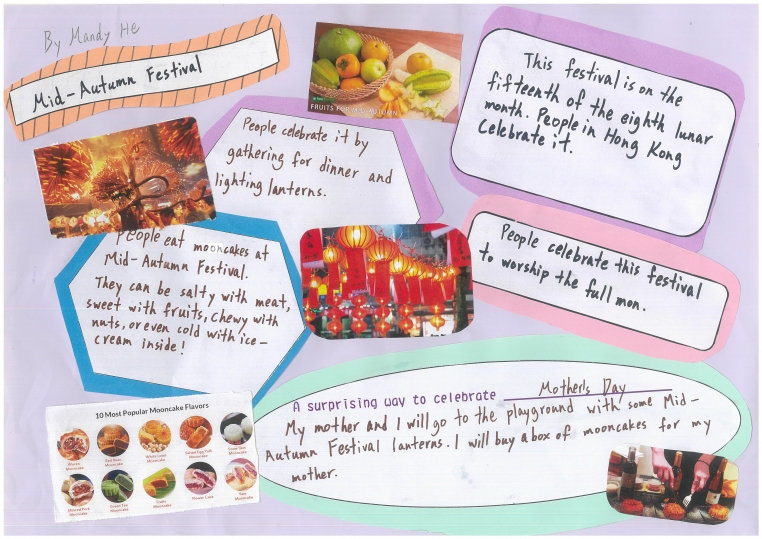 By Mandy He
Mid-Autumn Festival
FRUITS FOR MID-AUTUMN
This festival is on the
fifteenth of the eighth lunar
month. People in Hong Kong
Celebrate it.
People celebrate it by
gathering for dinner and
lighting lanterns.
People celebrate this festival
to worship the full mon.
People eat mooncakes at
Mid-Autumn Festival.
They can be salty with meat,
sweet with fruits, chewy with
nuts, or even cold with ice-
cream inside!
A surprising way to celebrate Mother's Day
My mother and I will go to the playground with some Mid-
Autumn Festival lanterns. I will buy a box of mooncakes for my
mother.
10 Most Popular Mooncake Flavors
Mooncake
Red Bean
Mooncake
White Lotus
Mooncake
Salted Egg Yolk
Mooncake
Snow Skin
Mooncake
Mooncake
Green Tea
Mooncake
Mooncake
Mooncake